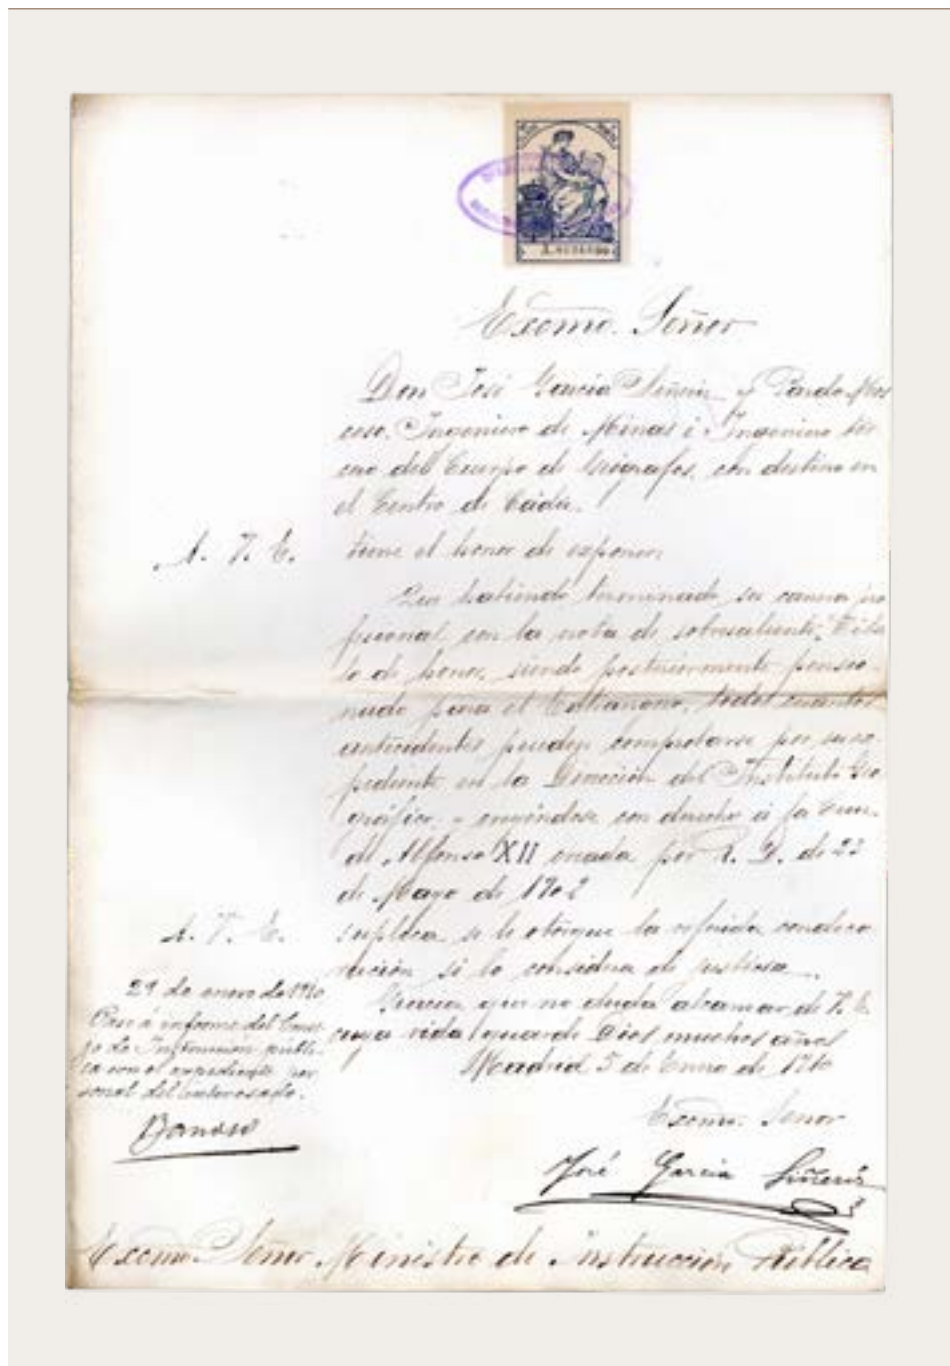 Excmo. Señor
Don José García Siñeriz y Pardo Mos
coso, Ingeniero de Minas é Ingeniero
del Cuerpo de Geógrafos, con destino en
el Centro de Cádiz.
A. V. E. tiene el honor de exponer:
Que habiendo terminado su carrera pro
fesional con la nota de sobresaliente, Títu
lo de honor, siendo posteriormente pensio-
nado para el Extranjero, todos cuantos
antecedentes pueden comprobarse por su ex
pediente en la Dirección del Instituto Geo
gráfico. - creyéndose con derecho á la Cruz
de Alfonso XII creada por R. D. de 23
de Mayo de 1902
A. V. E. suplica se le otorgue la referida condeco
ración si lo considera de justicia.
Gracia que no duda alcanzar de V. E.
cuya vida guarde Dios muchos años
Madrid 5 de Enero de 1910
29 de enero de 1910
Pase á informe del Conse-
jo de Instrucción públi-
ca con el expediente per
sonal del interesado.
Barroso
Excmo. Señor
José García Siñeriz
Excmo. Señor Ministro de Instrucción Pública